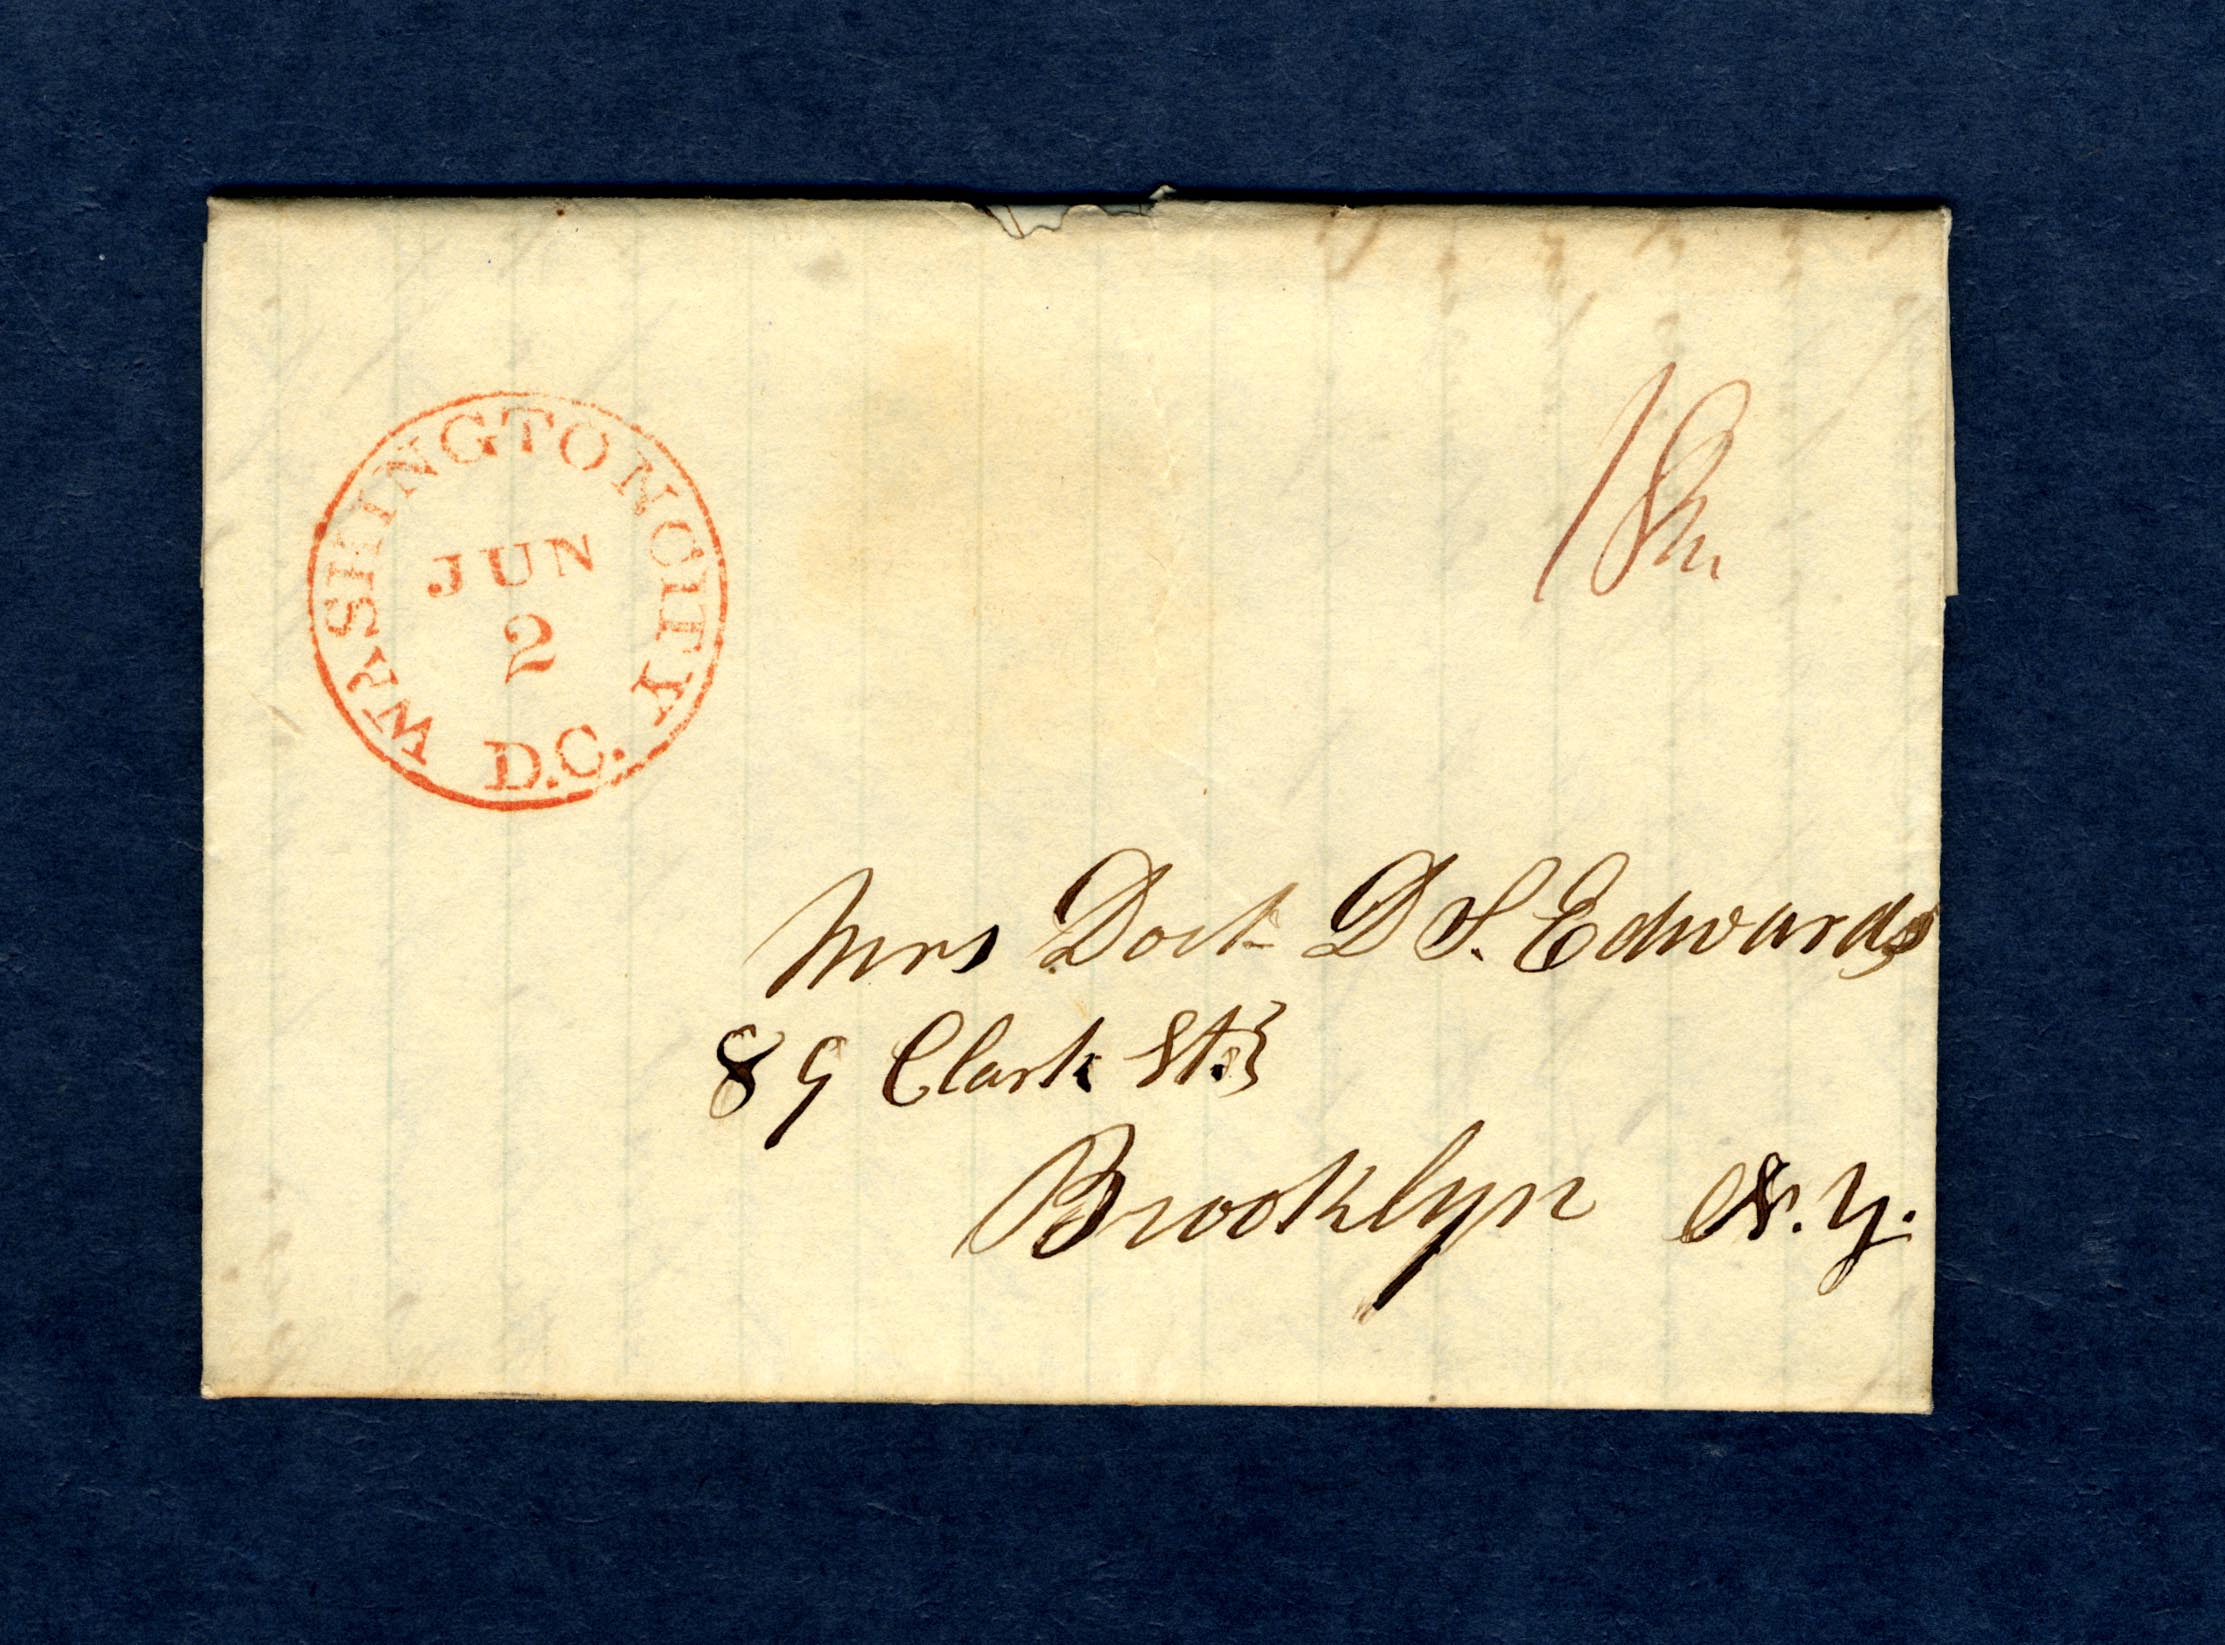 WASHINGTON CITY
JUN
2
D.C.
Mrs Doct D S. Edwards
89 Clark St.
Brooklyn N.Y.